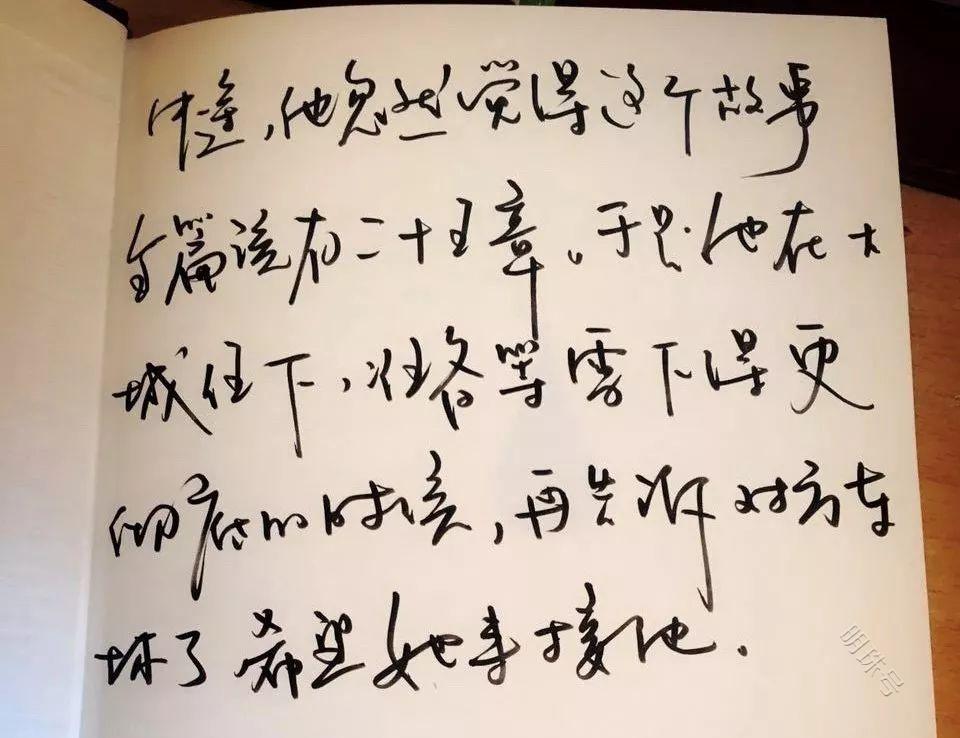 中途,他忽然觉得这个故事
全篇该有二十五章。于是他在大
城住下,准备等雪下得更
彻底的时候,再告诉对方车
坏了希望她来接他.
明珠号